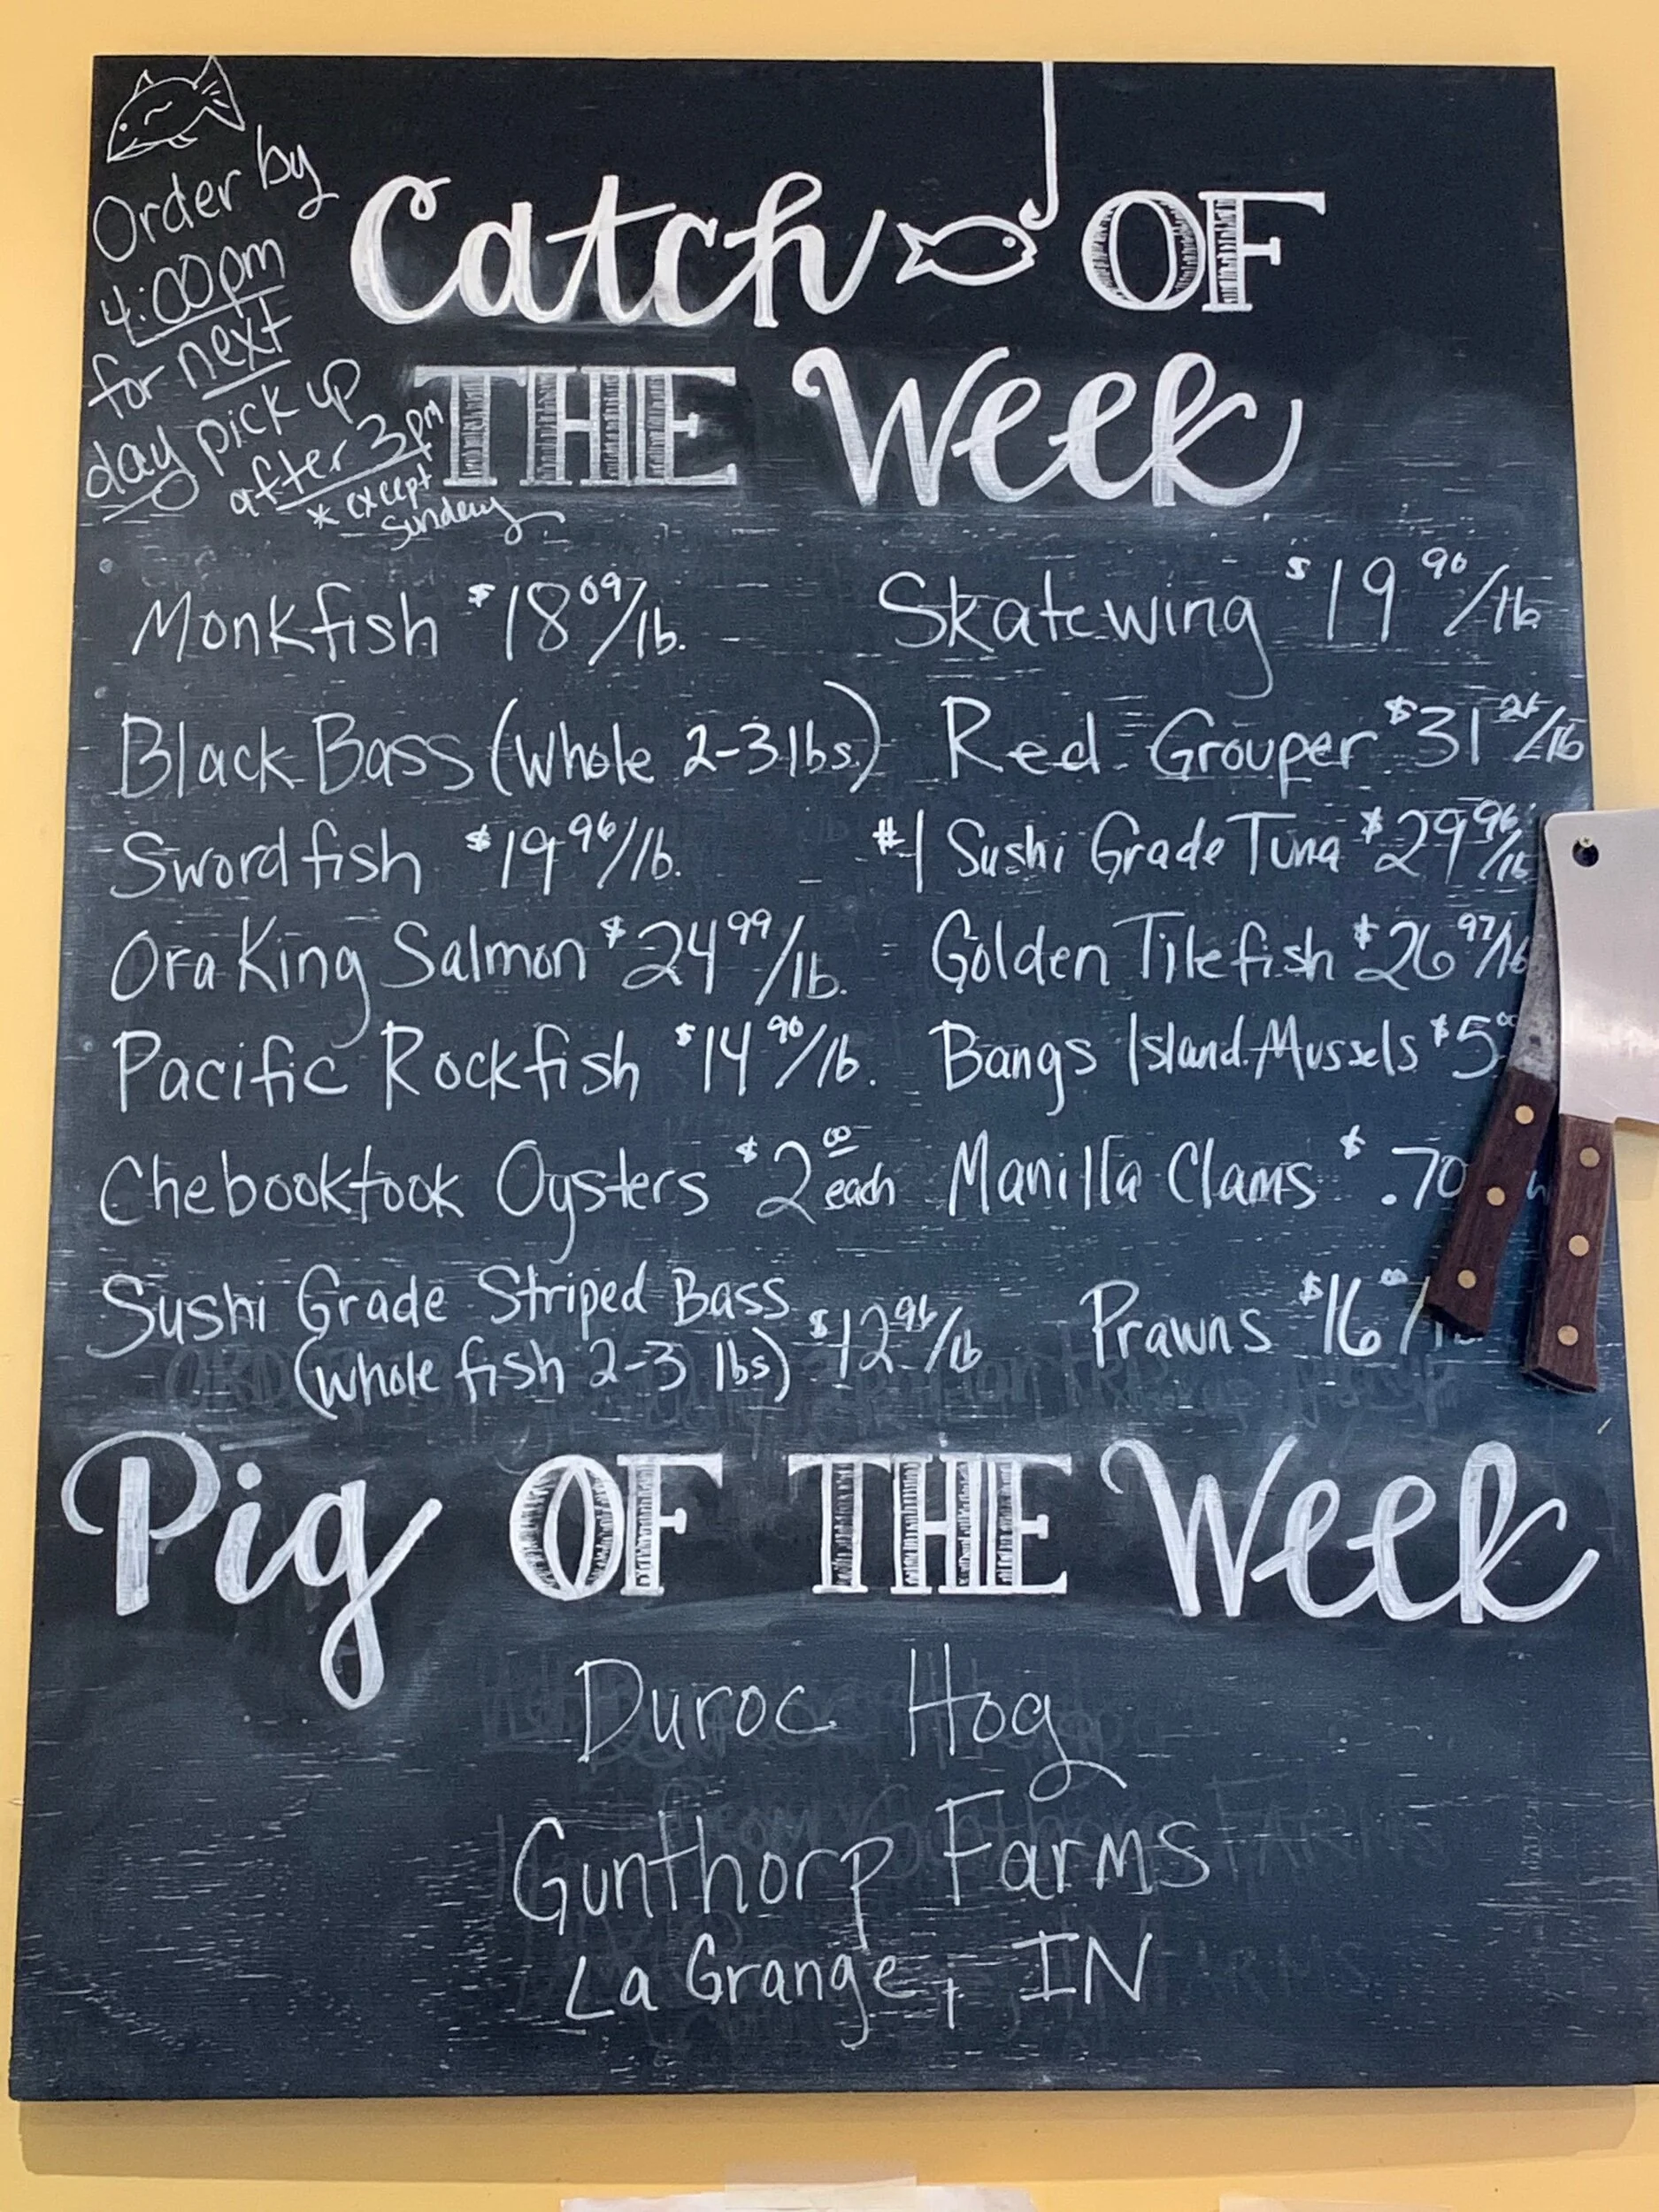 Order by
4:00pm
for next
day pick up
after 3pm
* except
Sunday
Catch OF
THE Week
Monkfish $18 09/lb.
Skatewing $19 90/lb
Black Bass (whole 2-3 lbs.)
Red Grouper $31 26/lb
Swordfish $19 96/lb.
#1 Sushi Grade Tuna $29 96/lb
Ora King Salmon $24 99/lb.
Golden Tilefish $26 97/lb
Pacific Rockfish $14 90/lb.
Bangs Island Mussels $5 00
Chebooktook Oysters $2 00 each
Manilla Clams $.70
Sushi Grade Striped Bass
(whole fish 2-3 lbs) $12 96/lb
Prawns $16 00/lb
Pig OF THE Week
Duroc Hog
Gunthorp Farms
La Grange, IN